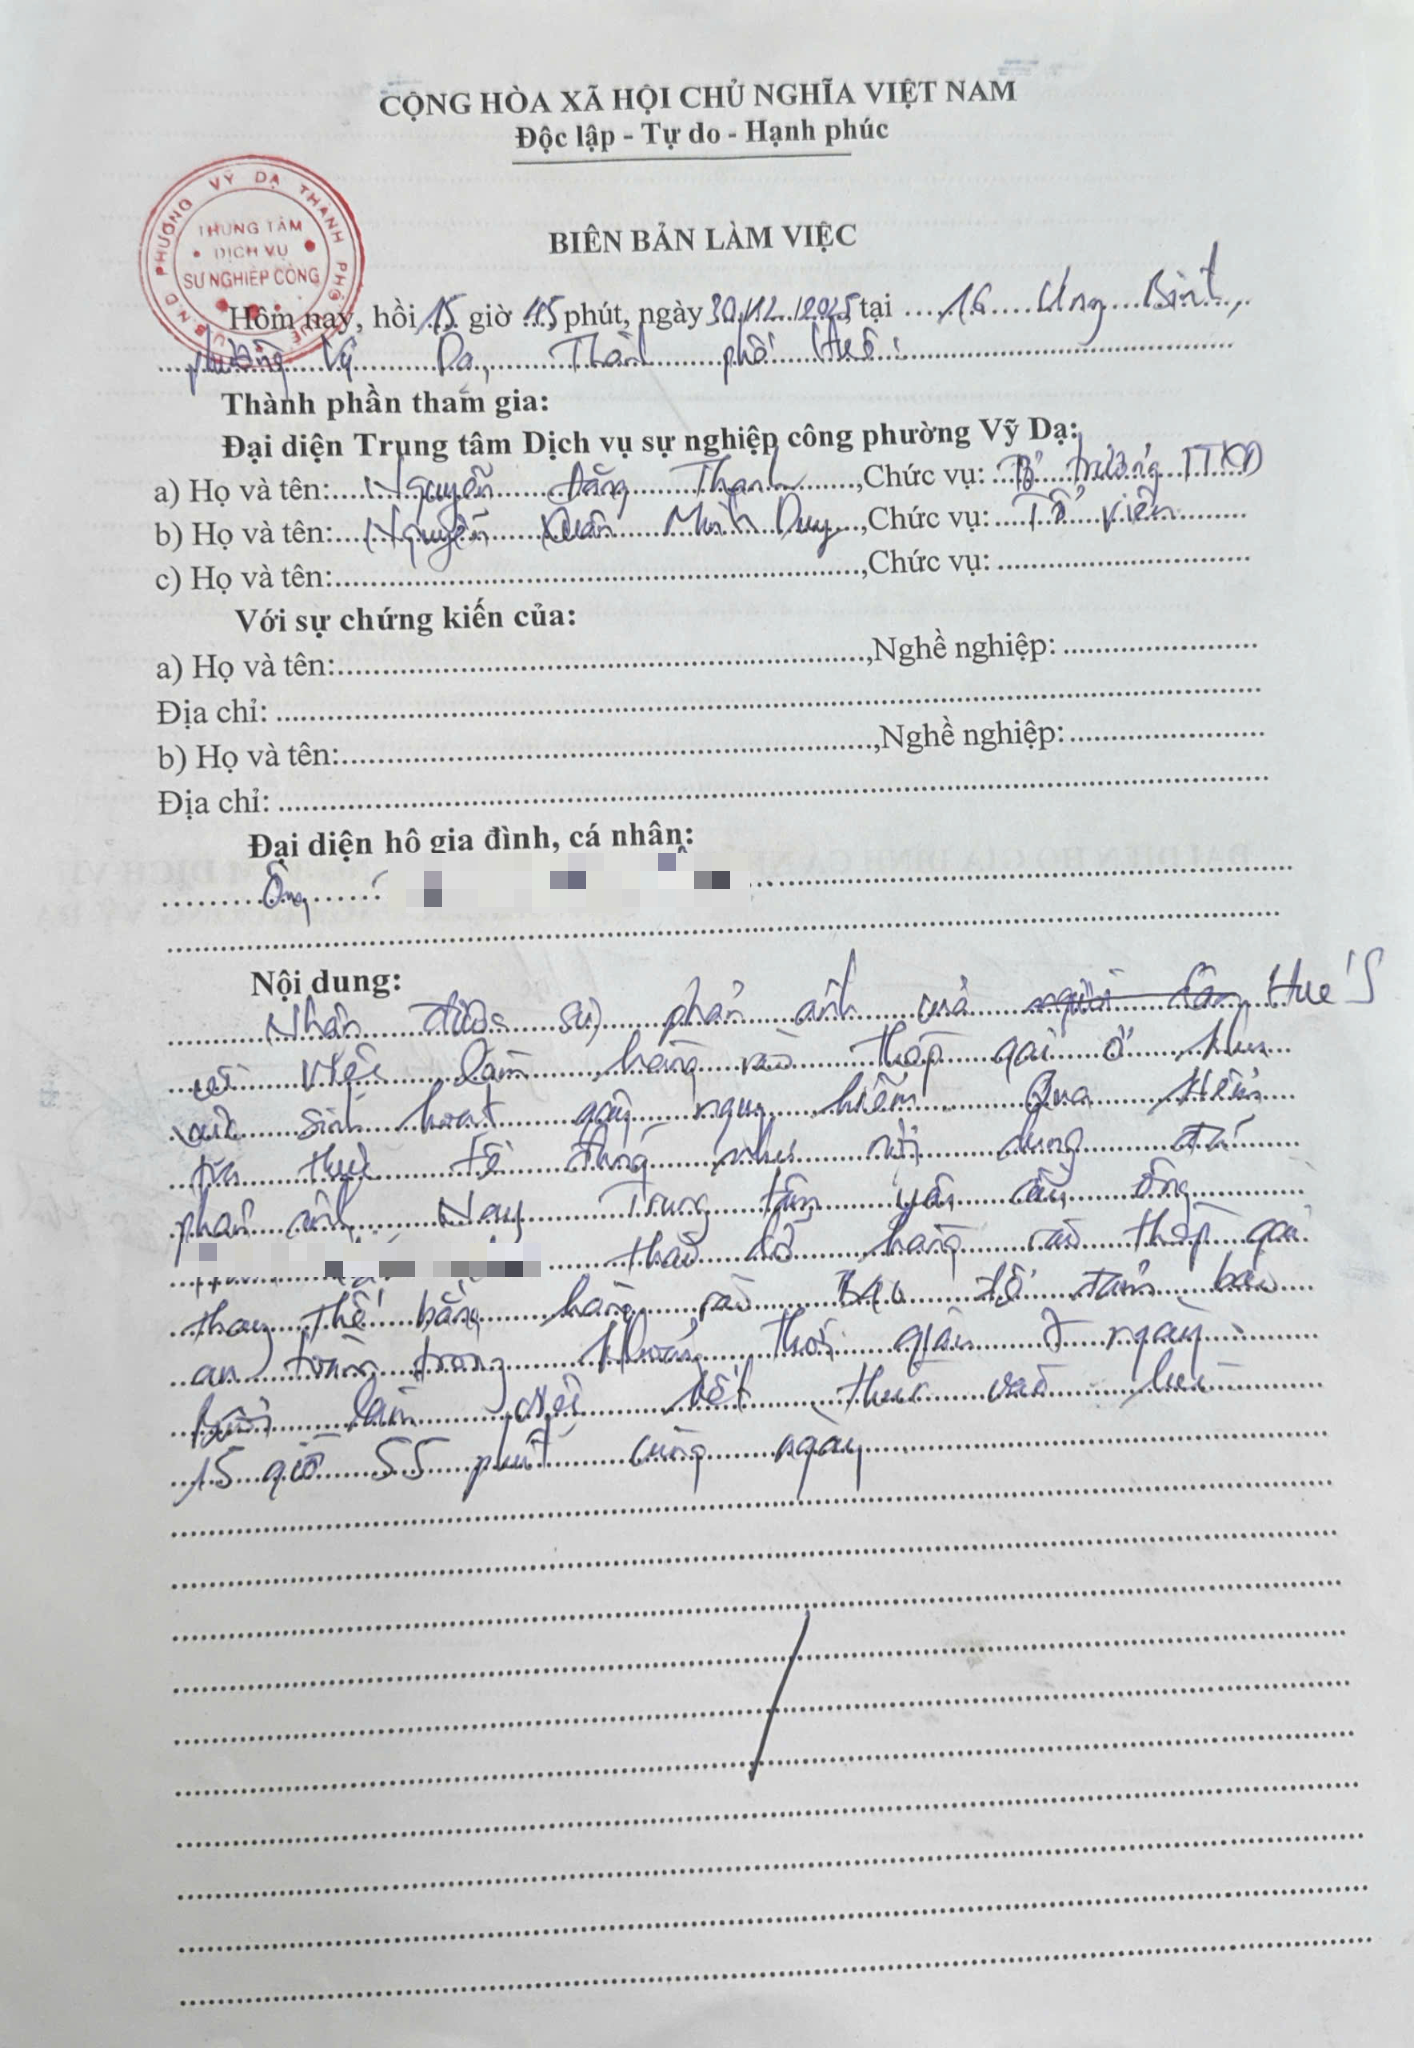 CỘNG HÒA XÃ HỘI CHỦ NGHĨA VIỆT NAM
Độc lập - Tự do - Hạnh phúc
U.B.N.D PHƯỜNG VỸ DẠ THÀNH PHỐ HUẾ
TRUNG TÂM
DỊCH VỤ
SỰ NGHIỆP CÔNG
BIÊN BẢN LÀM VIỆC
Hôm nay, hồi 15 giờ 45 phút, ngày 30/12/2025, tại 16 Ưng Bình,
phường Vỹ Dạ, Thành phố Huế.
Thành phần tham gia:
Đại diện Trung tâm Dịch vụ sự nghiệp công phường Vỹ Dạ:
a) Họ và tên: Nguyễn Đăng Thạnh, Chức vụ: Tổ trưởng TTXD
b) Họ và tên: Nguyễn Xuân Minh Duy, Chức vụ: Tổ viên
c) Họ và tên:, Chức vụ:
Với sự chứng kiến của:
a) Họ và tên:, Nghề nghiệp:
Địa chỉ:
b) Họ và tên:, Nghề nghiệp:
Địa chỉ:
Đại diện hộ gia đình, cá nhân:
Ông:
Nội dung:
Nhận được sự phản ánh của người dân Hue'S
về việc làm hàng rào thép gai ở khu
vực sinh hoạt gây nguy hiểm. Qua kiểm
tra thực tế đúng như nội dung đã
phản ánh. Nay Trung tâm yêu cầu ông
tháo dỡ hàng rào thép gai
thay thế bằng hàng rào B40 để đảm bảo
an toàn trong khoảng thời gian 7 ngày.
Buổi làm việc kết thúc vào lúc
15 giờ 55 phút cùng ngày